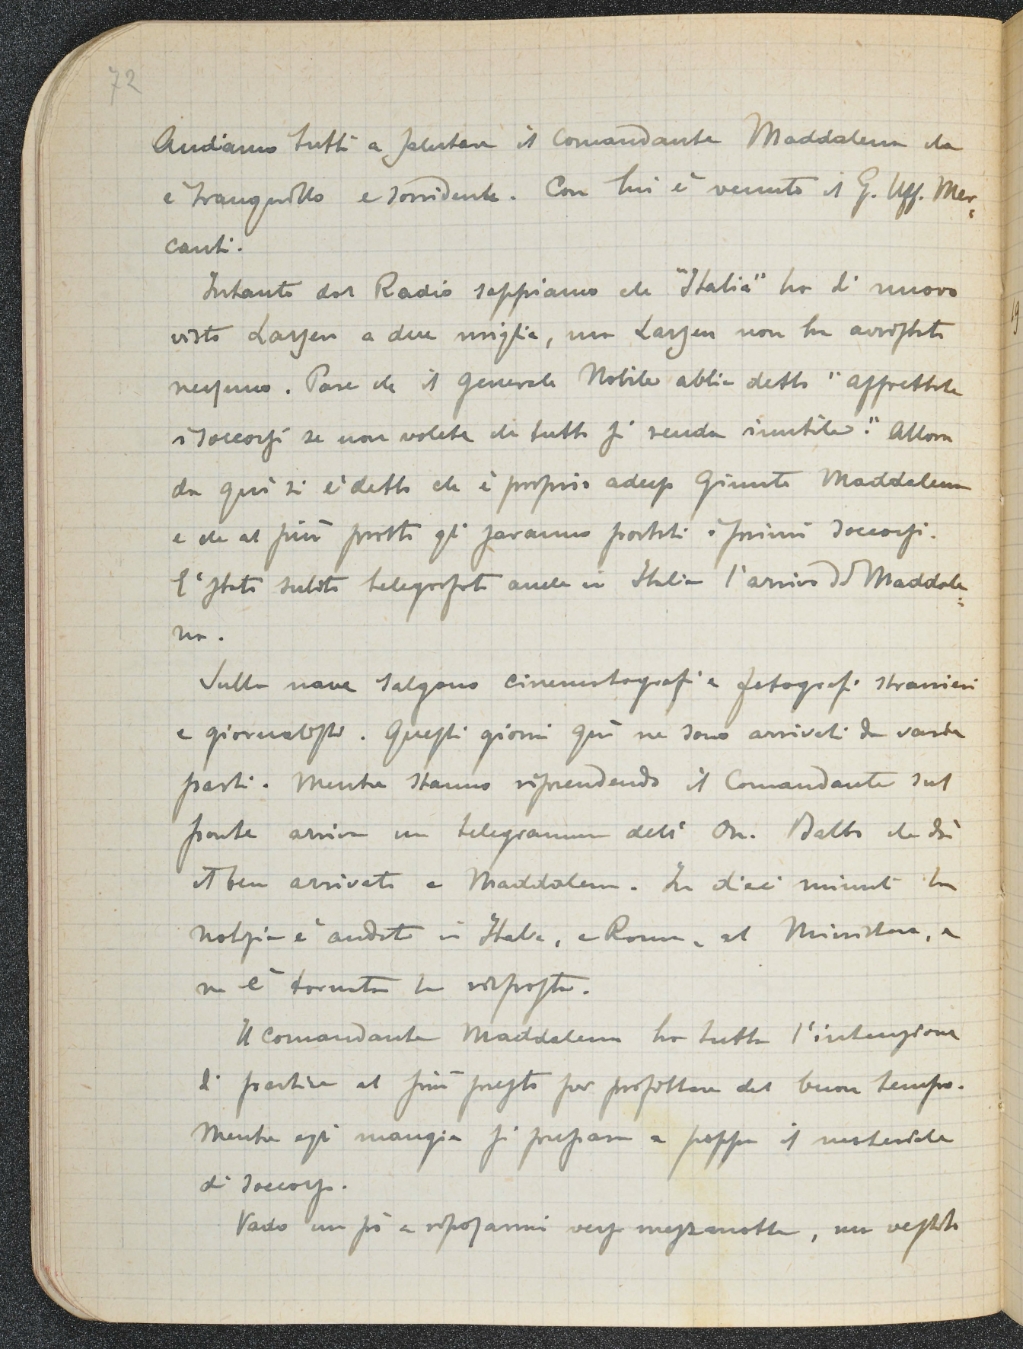 72
Andiamo tutti a salutare il Comandante Maddalena che
è tranquillo e sorridente. Con lui è venuto il G. Uff. Mer-
canti.
Intanto dal Radio sappiamo che "Italia" ha di nuovo
visto Larsen a due miglia, ma Larsen non ha avvistato
nessuno. Pare che il Generale Nobile abbia detto "affrettate
i soccorsi se non volete che tutto si renda inutile." Allora
da qui si è detto che è proprio adesso giunto Maddalena
e che al più presto gli saranno portati i primi soccorsi.
E' stato subito telegrafato anche in Italia l'arrivo di Maddale-
na.
Sulla nave salgono cinematografi e fotografi stranieri
e giornalisti. Questi giorni qui ne sono arrivati da varie
parti. Mentre stanno riprendendo il Comandante sul
ponte arriva un telegramma dell' On. Balbo che dà
il ben arrivato a Maddalena. In dieci minuti la
notizia è andata in Italia, a Roma, al Ministero, e
ne è tornata la risposta.
Il Comandante Maddalena ha tutta l'intenzione
di partire al più presto per profittare del buon tempo.
Mentre egli mangia si prepara a poppa il materiale
di soccorso.
Vado un pò a riposarmi verso mezzanotte, ma vestito